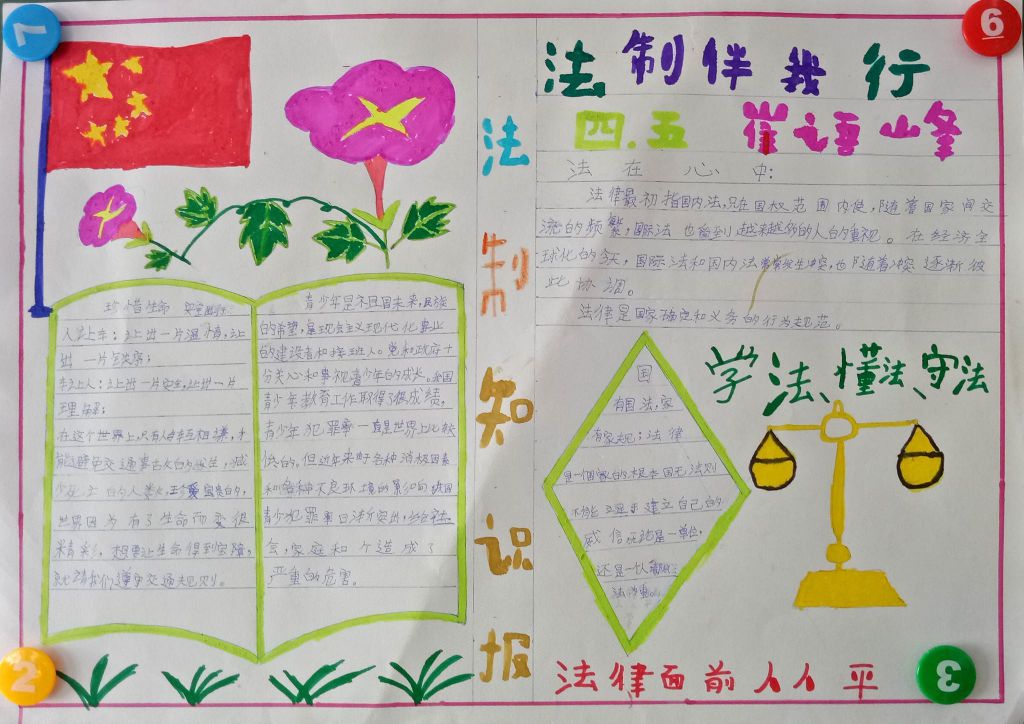 法制伴我行
四.五 崔语山峰
法在心中:
法律最初指国内法,只在国权范围内使,随着国家间交
流的频繁,国际法也受到越来越多的人的重视。在经济全
球化的今天,国际法和国内法常常发生冲突,也随着冲突逐渐彼
此协调。
法律是国家确定和义务的行为规范。
法制知识报
珍惜生命
人让车:让出一片温情,让
出一片
车让人:让出一片安全,让出一片
理解;
在这个世界上,只有人车互相,才
能避免交通事古的发生,减
少死亡的人类,珍爱宝贵的,
世界因为有了生命而变很
精彩,想要让生命得到安障,
就请我们遵守交通规则。
青少年是祖国未来,民族
的希望,是现会主义现代化事业
的建设者和接班人。党和政府十
分关心和重视青少年的成长。我国
青少年教育工作取得了很成绩,
青少年犯罪率一直是世界上比较
低的。但近年来由于各种消极因素
和各种不良环境的影响,我国
青少犯罪率日渐突出,给社
会,家庭和个造成了
严重的危害。
国
有国法,家
有家规:法律
是一个国家的根本国无法则
不能 建立自己的
威信,无论是一单位,
还是一
学法、懂法、守法
法律面前人人平
7
6
2
3